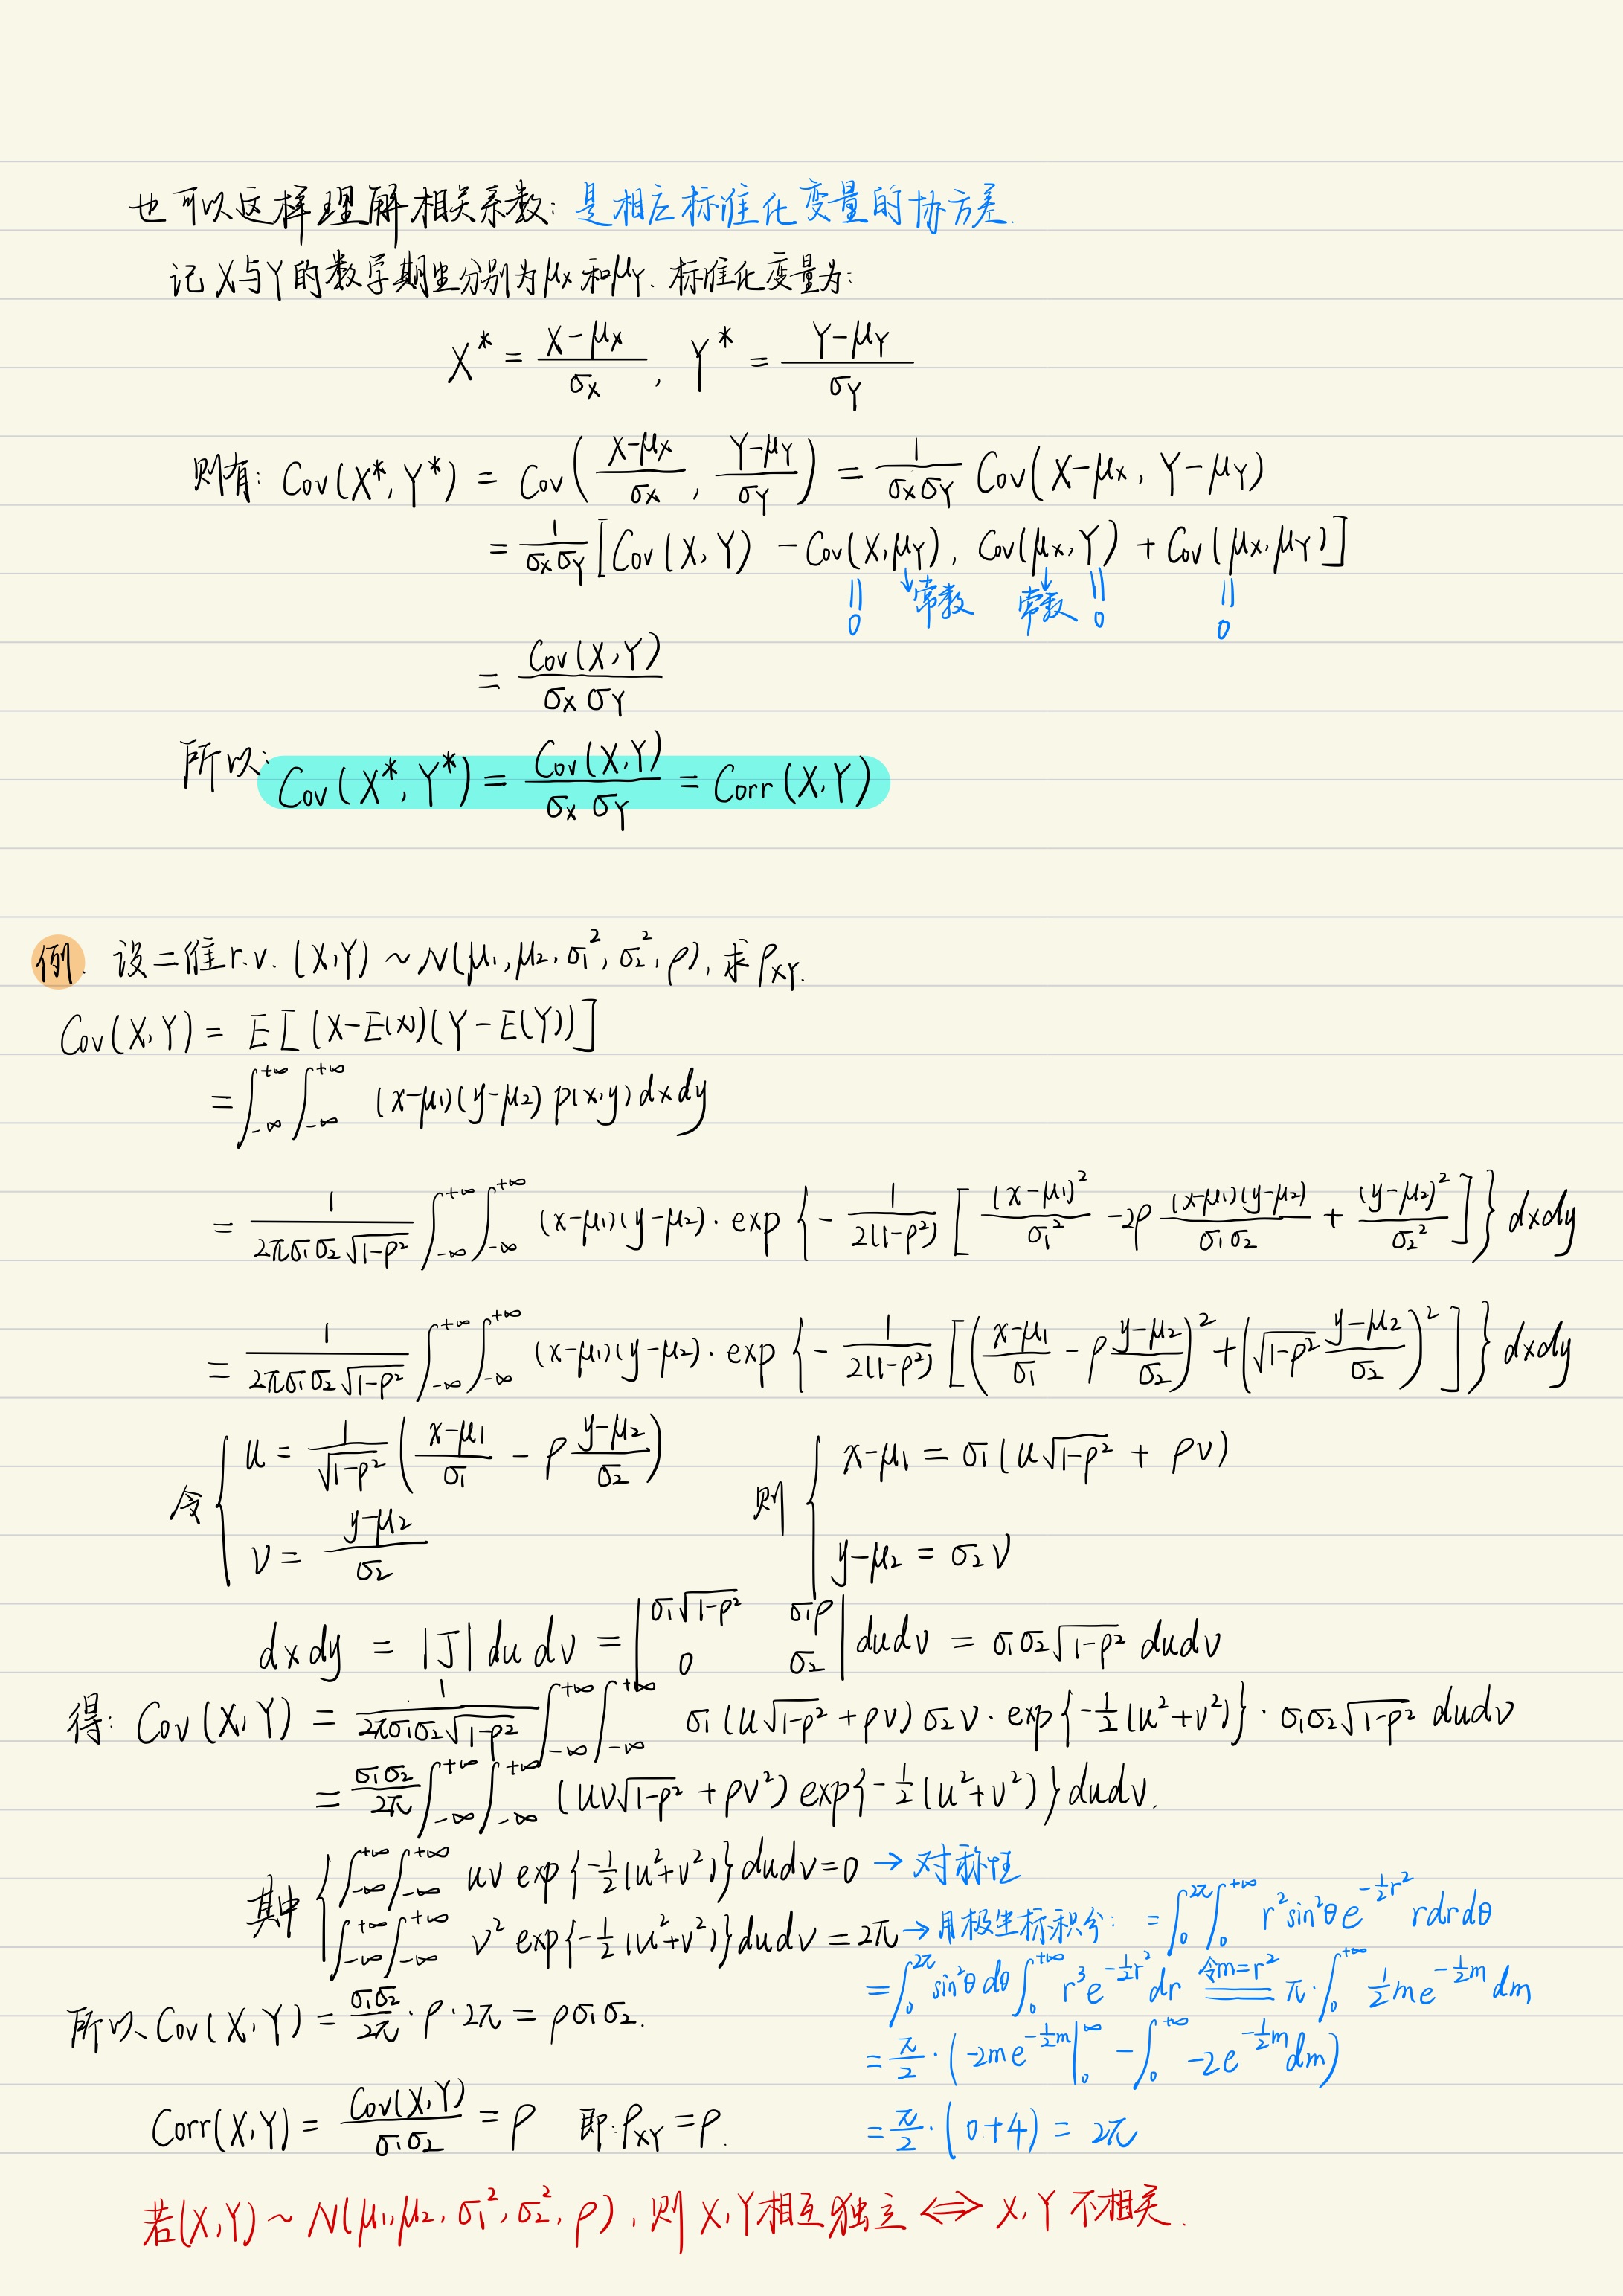 也可以这样理解相关系数: 是相应标准化变量的协方差.
记 X与Y的数学期望分别为μx 和μY. 标准化变量为:
X* = (X-μx)/σx , Y* = (Y-μY)/σY
则有: Cov(X*, Y*) = Cov((X-μx)/σx , (Y-μY)/σY) = 1/(σxσY) Cov(X-μx, Y-μY)
= 1/(σxσY) [Cov(X, Y) - Cov(X, μY), Cov(μx, Y) + Cov(μx, μY)]
|| ↓常数 常数↓ || ||
0 0 0
= Cov(X,Y)/(σx σY)
所以: Cov(X*, Y*) = Cov(X,Y)/(σx σY) = Corr(X,Y)
例. 设二维r.v. (X,Y) ~ N(μ1, μ2, σ1², σ2², ρ), 求ρXY.
Cov(X,Y) = E[(X-E(X))(Y-E(Y))]
= ∫_{-∞}^{+∞}∫_{-∞}^{+∞} (x-μ1)(y-μ2) p(x,y) dxdy
= 1/(2πσ1σ2√(1-ρ²)) ∫_{-∞}^{+∞}∫_{-∞}^{+∞} (x-μ1)(y-μ2)· exp{- 1/(2(1-ρ²)) [(x-μ1)²/σ1² -2ρ (x-μ1)(y-μ2)/(σ1σ2) + (y-μ2)²/σ2²]} dxdy
= 1/(2πσ1σ2√(1-ρ²)) ∫_{-∞}^{+∞}∫_{-∞}^{+∞} (x-μ1)(y-μ2)· exp{- 1/(2(1-ρ²)) [((x-μ1)/σ1 - ρ (y-μ2)/σ2)² + (√(1-ρ²) (y-μ2)/σ2)²]} dxdy
令 { u = 1/√(1-ρ²) ((x-μ1)/σ1 - ρ (y-μ2)/σ2) 则 { x-μ1 = σ1(u√(1-ρ²) + ρv)
v = (y-μ2)/σ2 y-μ2 = σ2 v
dxdy = |J| du dv = | σ1√(1-ρ²) σ1ρ ; 0 σ2 | dudv = σ1σ2√(1-ρ²) dudv
得: Cov(X,Y) = 1/(2πσ1σ2√(1-ρ²)) ∫_{-∞}^{+∞}∫_{-∞}^{+∞} σ1(u√(1-ρ²) + ρv) σ2 v· exp{-1/2(u²+v²)}· σ1σ2√(1-ρ²) dudv
= σ1σ2/2π ∫_{-∞}^{+∞}∫_{-∞}^{+∞} (uv√(1-ρ²) + ρv²) exp{-1/2(u²+v²)} dudv.
其中 { ∫_{-∞}^{+∞}∫_{-∞}^{+∞} uv exp{-1/2(u²+v²)} dudv = 0 → 对称性
∫_{-∞}^{+∞}∫_{-∞}^{+∞} v² exp{-1/2(u²+v²)} dudv = 2π → 用极坐标积分: = ∫_0^{2π}∫_0^{+∞} r²sin²θ e^{-1/2 r²} rdrdθ
= ∫_0^{2π} sin²θ dθ ∫_0^{+∞} r³ e^{-1/2 r²} dr 令m=r² = π·∫_0^{+∞} 1/2 m e^{-1/2 m} dm
所以 Cov(X,Y) = σ1σ2/2π · ρ · 2π = ρσ1σ2.
= π/2 · (-2m e^{-1/2 m} |_0^∞ - ∫_0^{+∞} -2e^{-1/2 m} dm)
Corr(X,Y) = Cov(X,Y)/(σ1σ2) = ρ 即: ρXY = ρ.
= π/2 · (0+4) = 2π
若(X,Y) ~ N(μ1, μ2, σ1², σ2², ρ), 则 X,Y相互独立 ⟺ X, Y 不相关.